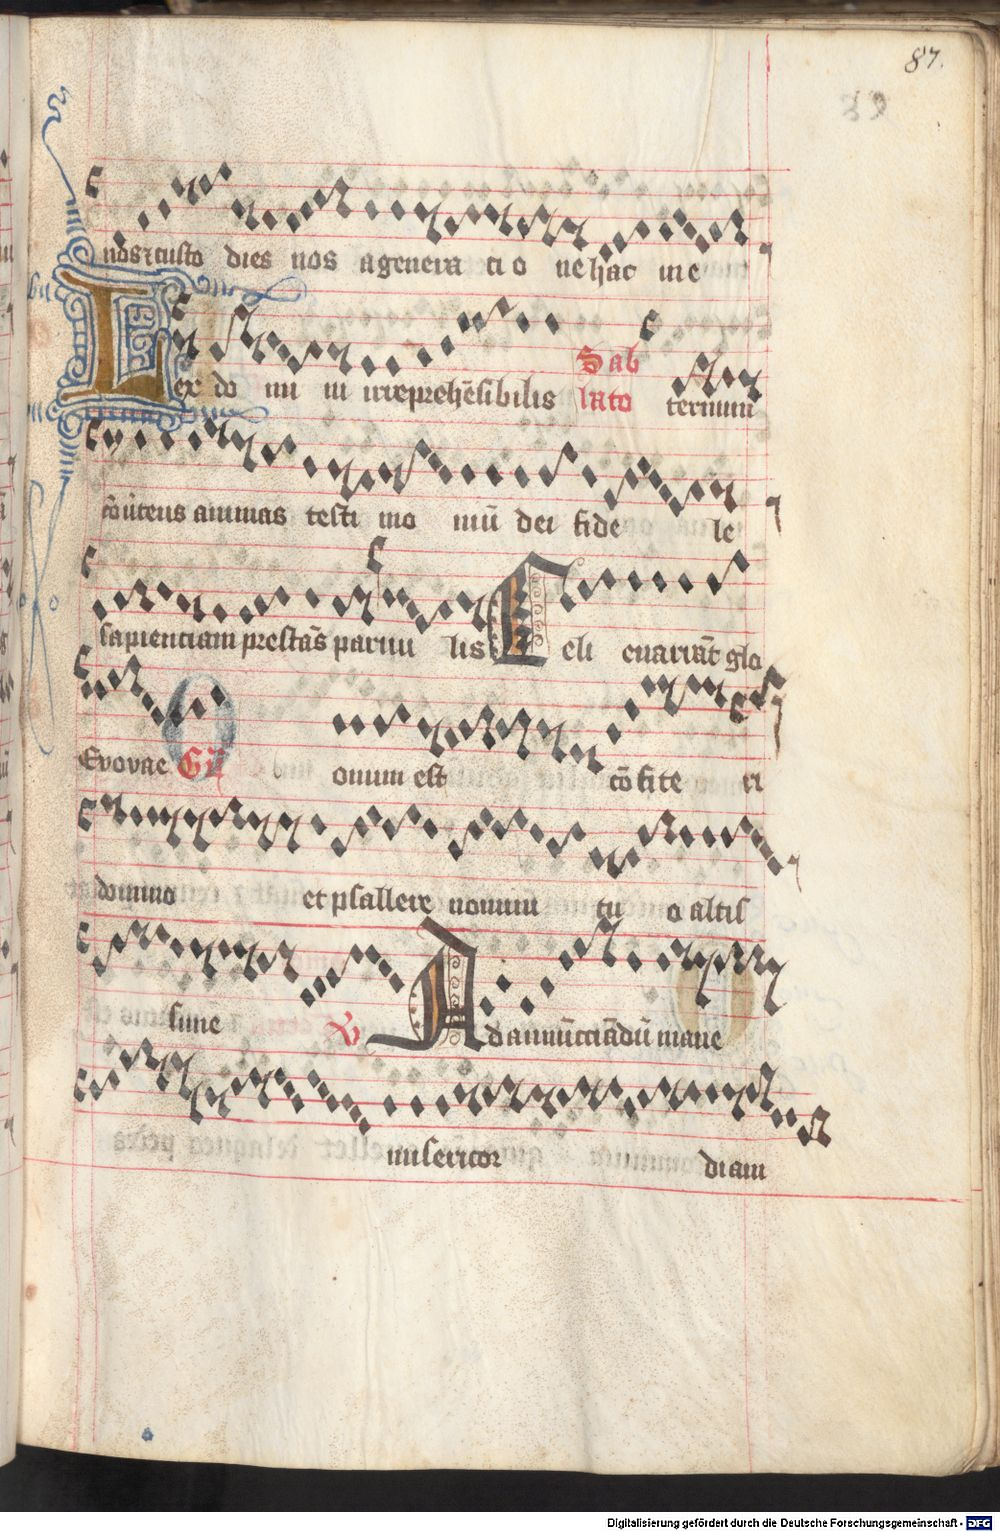 87.
nos ⁊ custo dies nos a genera ci o ne hac in e
Lex do mi ni irreprehēsibilis Sab
lato ternum
cōūtens animas testi mo niū dei fide le
sapienciam prestās paruu lis Celi enarrāt glo
Evovae Gͬ
Bonum est cōfite ri
domino et psallere nomini tu o altis
sime ℣ Ad annūcciādū mane
misericor diam
Digitalisierung gefördert durch die Deutsche Forschungsgemeinschaft - DFG